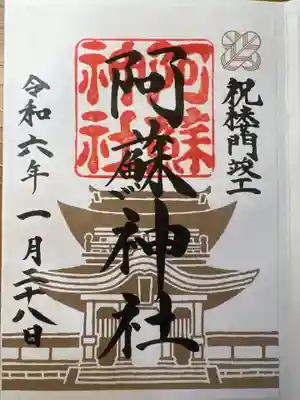 祝楼門竣工
阿蘇神社
阿蘇神社
令和六年一月二十八日